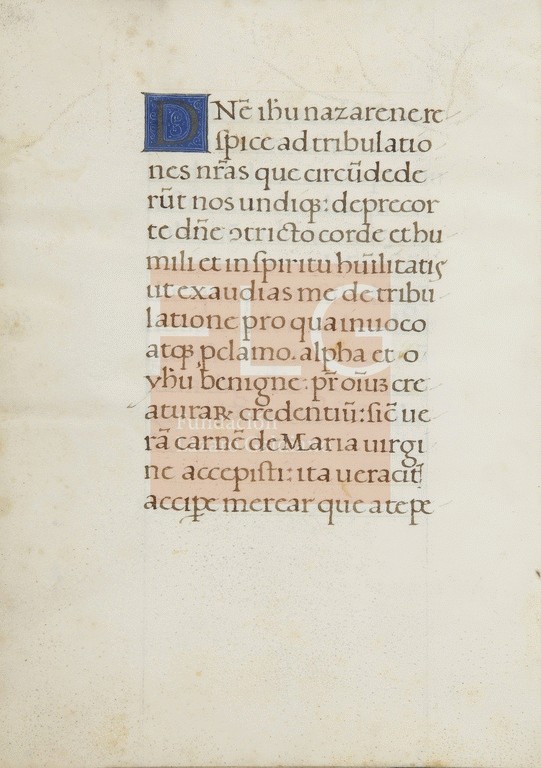 DNē ihu nazarene re
spice ad tribulatio
nes nr̄as que circūdede
rūt nos undiqꝫ: deprecor
te dn̄e ↄtricto corde et hu
mili et in spiritu hūilitatis
ut exaudias me de tribu
latione pro qua inuoco
atqꝫ ꝓclamo. alpha et o
yhū benigne: pr̄ oīuꝫ cre
aturaꝝ credentiū: sic̄ ue
rā carnē de Maria uirgi
ne accepisti: ita ueracit̄
accipe mercar que a te pe
FLG
Fundación